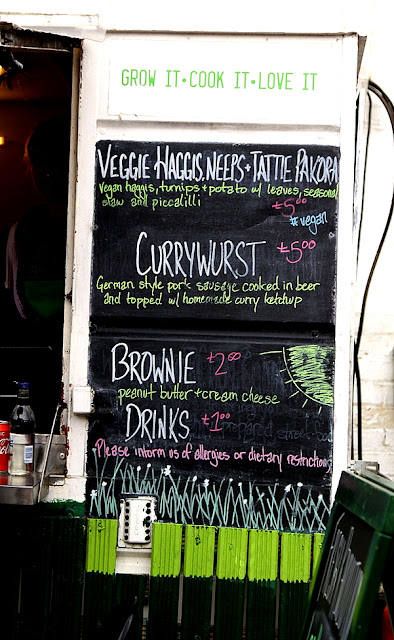 GROW IT • COOK IT • LOVE IT
VEGGIE HAGGIS, NEEPS + TATTIE PAKORA
Vegan haggis, turnips + potato w/ leaves, seasonal
slaw and piccalilli
£5.00
#vegan
CURRYWURST £5.00
German style pork sausage cooked in beer
and topped w/ homemade curry ketchup
BROWNIE £2.00
peanut butter + cream cheese
DRINKS £1.00
Please inform us of allergies or dietary restrictions